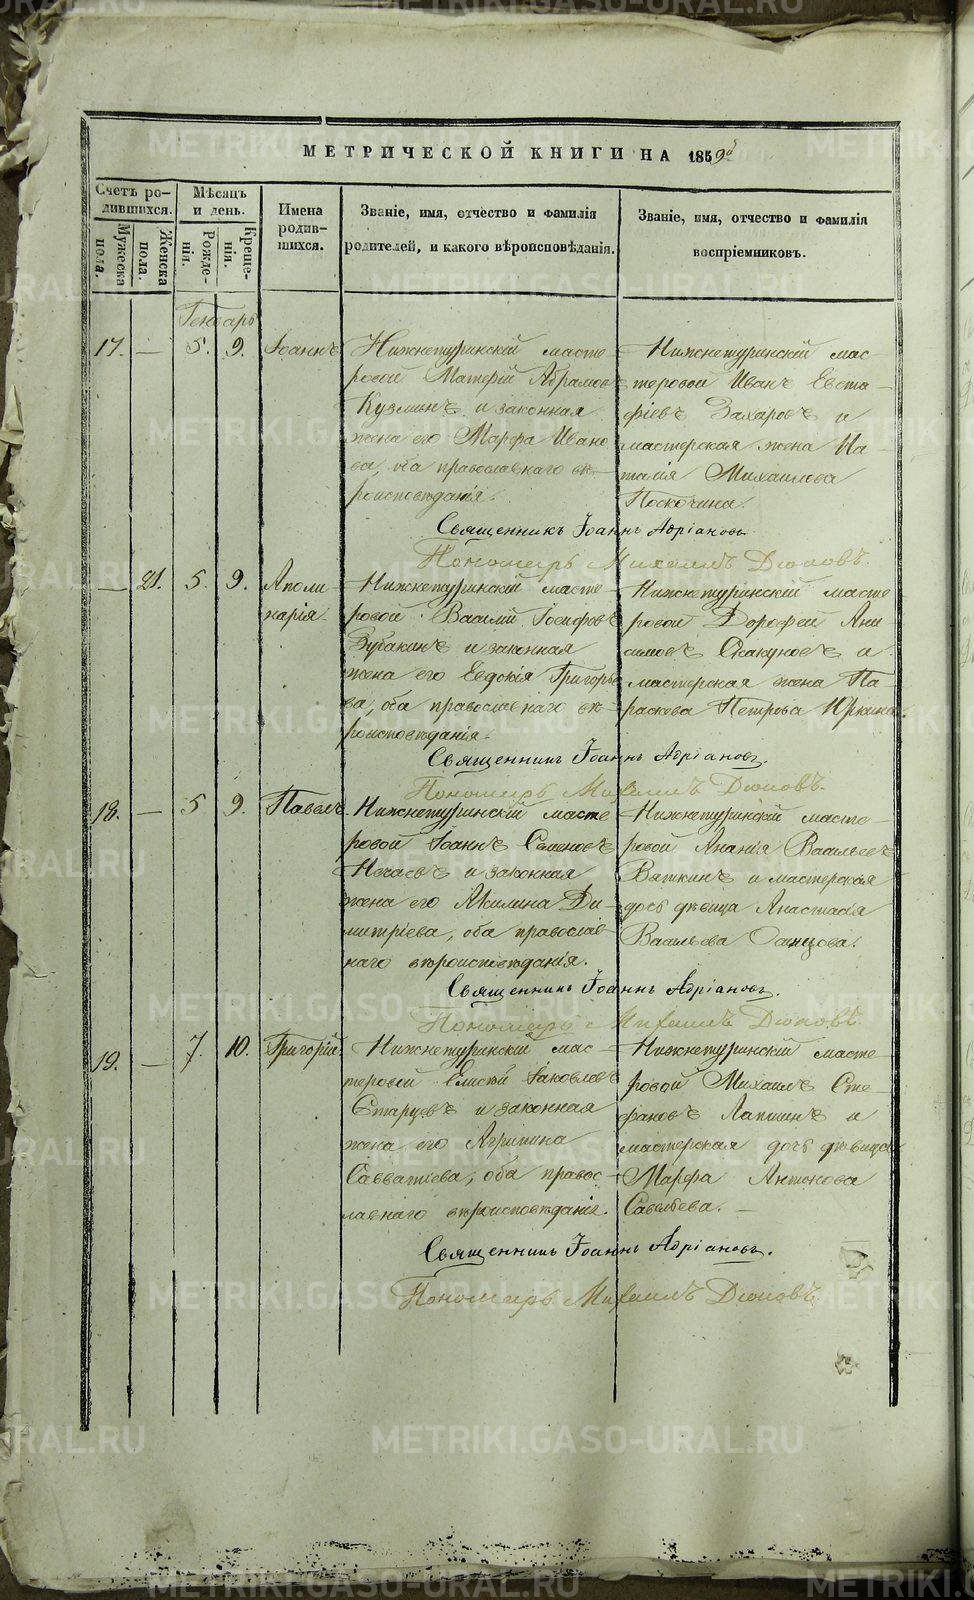 МЕТРИЧЕСКОЙ КНИГИ НА 1859й
Счетъ ро-
дившихся.
Мужеска
пола.
Женска
пола.
Мѣсяцъ
и день.
Рожде-
нія.
Креще-
нія.
Имена
родив-
шихся.
Званіе, имя, отчество и фамилія
родителей, и какого вѣроисповѣданія.
Званіе, имя, отчество и фамилія
воспріемниковъ.
Генварь
17. — 5. 9. Іоаннъ
Нижнетуринскій масте-
ровой Матфій Абрамовъ
Кузминъ и законная
жена его Марфа Ивано
ва, оба православнаго вѣ-
роисповѣданія.
Нижнетуринскій мас
теровой Иванъ Евста-
фіевъ Захаровъ и
мастерская жена На-
талія Михаилова
Поскочина.
Священникъ Іоаннъ Адріановъ
Пономарь Михаилъ Дюповъ.
— 21. 5. 9. Аполи-
нарія.
Нижнетуринскій масте-
ровой Василій Іосифовъ
Зубакинъ и законная
жена его Евдокія Григорье
ва, оба православнаго вѣ-
роисповѣданія.
Нижнетуринскій масте
ровой Дорофей Ани-
симовъ Скакуновъ и
мастерская жена Па-
раскева Петрова Юркина.
Священникъ Іоаннъ Адріановъ.
Пономарь Михаилъ Дюповъ.
18. — 5 9. Павелъ.
Нижнетуринскій масте
ровой Іоаннъ Семеновъ
и законная
жена его Акилина Ди-
митріева, оба православ-
наго вѣроисповѣданія.
Нижнетуринскій масте-
ровой Ананія Васильевъ
Вяткинъ и мастерская
дочь дѣвица Анастасія
Васильева
Священникъ Іоаннъ Адріановъ.
Пономарь Михаилъ Дюповъ.
19. — 7. 10. Григорій.
Нижнетуринскій мас-
теровой Елисѣй Іаковлевъ
Старцевъ и законная
жена его Агрипина
Савватіева, оба правос-
лавнаго вѣроисповѣданія.
Нижнетуринскій масте-
ровой Михаилъ Сте-
фановъ Лапшинъ и
мастерская дочь дѣвица
Марфа Антонова
Савельева. —
Священникъ Іоаннъ Адріановъ.
Пономарь Михаилъ Дюповъ.
METRIKI.GASO-URAL.RU